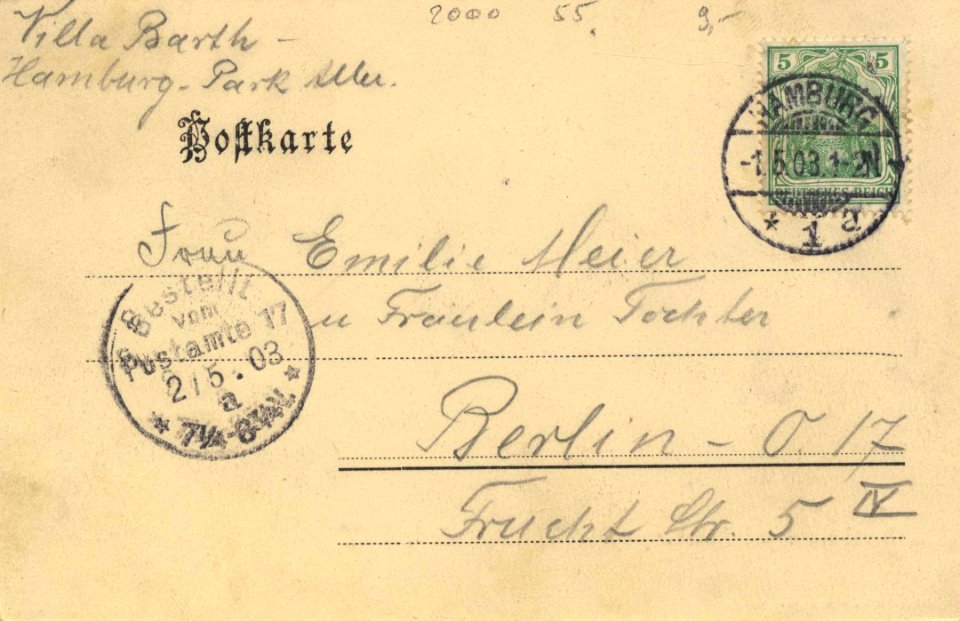 2000 55. 9,-
Villa Barth -
Hamburg - Park Aller.
Postkarte
5 5
DEUTSCHES REICH
HAMBURG
-1.5.03.1-2N
* 1 a
Frau Emilie Meier
u Fräulein Tochter
Berlin - O. 17
Frucht Str. 5 IV
Bestellt
vom
Postamte 17
2/5.03
a
* 7¼-8¼V. *